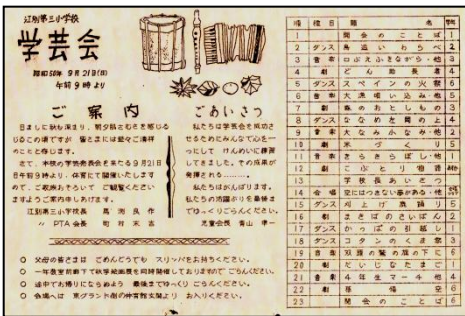 江別第三小学校
学芸会
昭和50年 9月21日(日)
午前9時より
ご案内
日ましに秋も深まり、朝夕時さむさを感じる
このごろですが 皆さまには益々ご清祥
のことと存じます。
さて、本校の学芸発表会を来たる9月21日
日午前9時より、体育にて開催いたします
ので、ご家族おそろいで ご観覧ください
ますようご案内申しあげます。
江別第三小学校長
〃 PTA会長
ごあいさつ
私たちは学芸会を成功さ
せるためにみんなで心を一
つにして けんめいに練習
してきました。その成果が
発揮される
私たちはがんばります。
私たちの活躍ぶりを最後ま
でゆっくりごらんください。
児童会長 青山 準一
○ 父母の皆さまは ごめんどうでも スリッパをお持ちください。
○ 一年教室前廊下で秋学絵画展を同時開催しておりますので ごらんください。
○ 途中でお帰りにならぬよう 最後までゆっくり ごらんください。
○ 会場へは 東グランド側の体育館玄関より お入りください。
順 種目 題名 学年
1 開会のことば 1
2 ダンス 鳥追いわらべ 2
3 音楽 口ぶえふきながら・他 3
4 劇 4
5 ダンス スペインの火祭 6
6 音楽 5
7 劇 森のおとしもの 3
8 ダンス ななめ右間の上 4
9 音楽 大なみ小なみ・他 2
10 劇 米づくり 5
11 音楽 きらきらぼし・他 1
12 劇 こぶとり
13 学校長あいさつ
14 合唱 空にはつきない夢がある・他
15 ダンス 刈上げ 踊り 5
16 劇 まきばのさいばん 2
17 ダンス かっぱの引越し 1
18 ダンス コタンのくま祭 3
19 音楽 双頭の鷲の旗の下に 6
20 劇 だいじなたまご 1
21 音楽 4年生マーチ・他 4
22 劇 6
23 閉会のことば 6